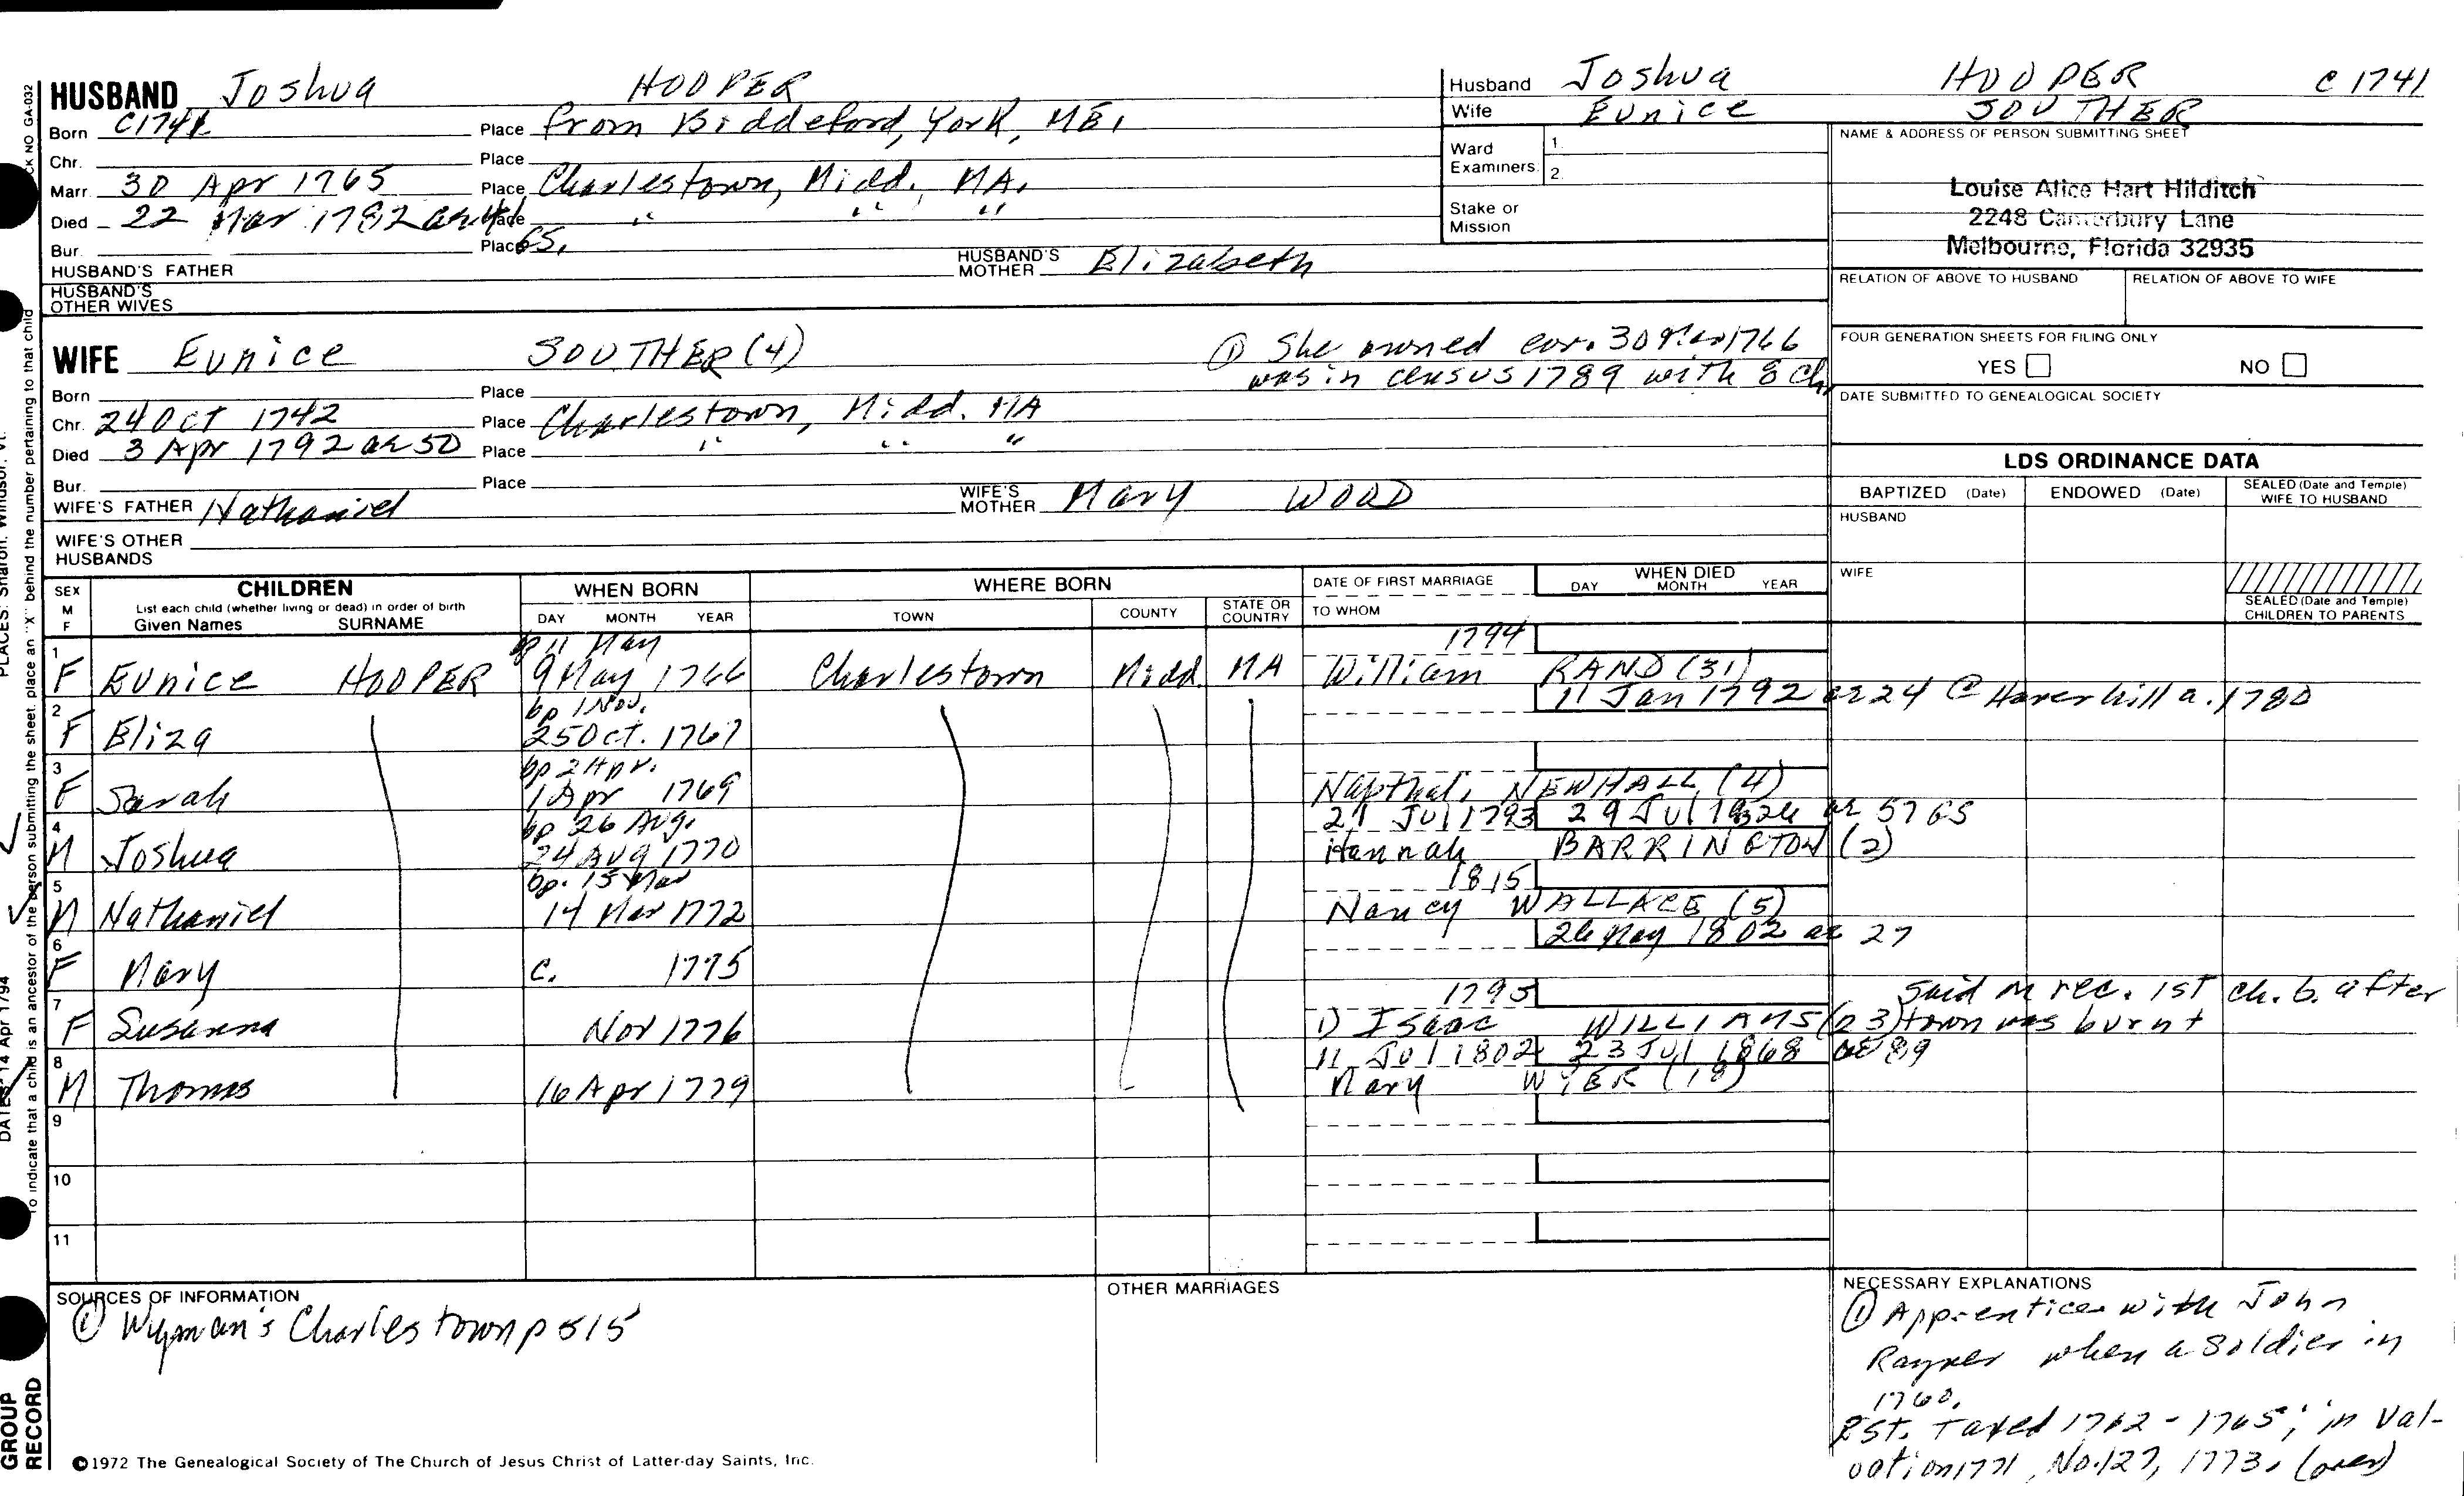 HUSBAND Joshua HOOPER
Born C1741 Place from Biddeford, York, ME.
Chr. Place
Marr. 30 Apr 1765 Place Charlestown, Midd. MA.
Died 22 Mar 1782 ae 41 Place " " "
Bur. Place GS.
HUSBAND'S FATHER HUSBAND'S MOTHER Elizabeth
HUSBAND'S OTHER WIVES
Husband Joshua HOOPER C 1741
Wife Eunice SOUTHER
Ward Examiners 1.
2.
Stake or Mission
NAME & ADDRESS OF PERSON SUBMITTING SHEET
Louise Alice Hart Hilditch
2248 Canterbury Lane
Melbourne, Florida 32935
RELATION OF ABOVE TO HUSBAND RELATION OF ABOVE TO WIFE
FOUR GENERATION SHEETS FOR FILING ONLY
YES NO
DATE SUBMITTED TO GENEALOGICAL SOCIETY
WIFE Eunice SOUTHER (4)
① She owned cov. 30 1766
was in census 1789 with 8 ch.
Born Place
Chr. 24 Oct 1742 Place Charlestown, Midd. MA
Died 3 Apr 1792 ae 50 Place " " "
Bur. Place
WIFE'S FATHER Nathaniel WIFE'S MOTHER Mary WOOD
WIFE'S OTHER HUSBANDS
LDS ORDINANCE DATA
BAPTIZED (Date) ENDOWED (Date) SEALED (Date and Temple) WIFE TO HUSBAND
HUSBAND
WIFE
SEALED (Date and Temple) CHILDREN TO PARENTS
SEX M F
CHILDREN
List each child (whether living or dead) in order of birth
Given Names SURNAME
WHEN BORN
DAY MONTH YEAR
WHERE BORN
TOWN COUNTY STATE OR COUNTRY
DATE OF FIRST MARRIAGE
TO WHOM
WHEN DIED
DAY MONTH YEAR
bp 11 May 1794
1 F Eunice HOOPER 9 May 1766 Charlestown Midd. MA William RAND (31)
bp 1 Nov. 11 Jan 1792 ae 24 @ Haverhill a. 1780
2 F Eliza 25 Oct. 1767
bp 2 Apr.
3 F Sarah 1 Apr 1769 Napthali NEWHALL (4)
bp 26 Aug. 21 Jul 1793 29 Jul ae 57 GS
4 M Joshua 24 Aug 1770 Hannah BARRINGTON (2)
bp. 15 Mar 1815
5 M Nathaniel 14 Mar 1772 Nancy WALLACE (5)
26 May 1802 ae 27
6 F Mary C. 1775
1795 Said in rec. 1st ch. b. after
7 F Susanna Nov 1776 1) Isaac WILLIAMS (23) town was burnt
11 Jul 1802 23 Jul 1868 ae 89
8 M Thomas 16 Apr 1779 Mary WIER (18)
9
10
11
SOURCES OF INFORMATION
① Wyman's Charlestown p 515
OTHER MARRIAGES
NECESSARY EXPLANATIONS
① Apprentice with John
Rayner when a soldier in
1760.
Est. Taxed 1762 - 1765; in Val-
uation 1771, No. 127, 1773. (over)
©1972 The Genealogical Society of The Church of Jesus Christ of Latter-day Saints, Inc.
CK NO GA-032
To indicate that a child is an ancestor of the person submitting the sheet, place an "X" behind the number pertaining to that child
PLACES: Sharon, Windsor, Vt.
DATES: 14 Apr 1794
GROUP
RECORD